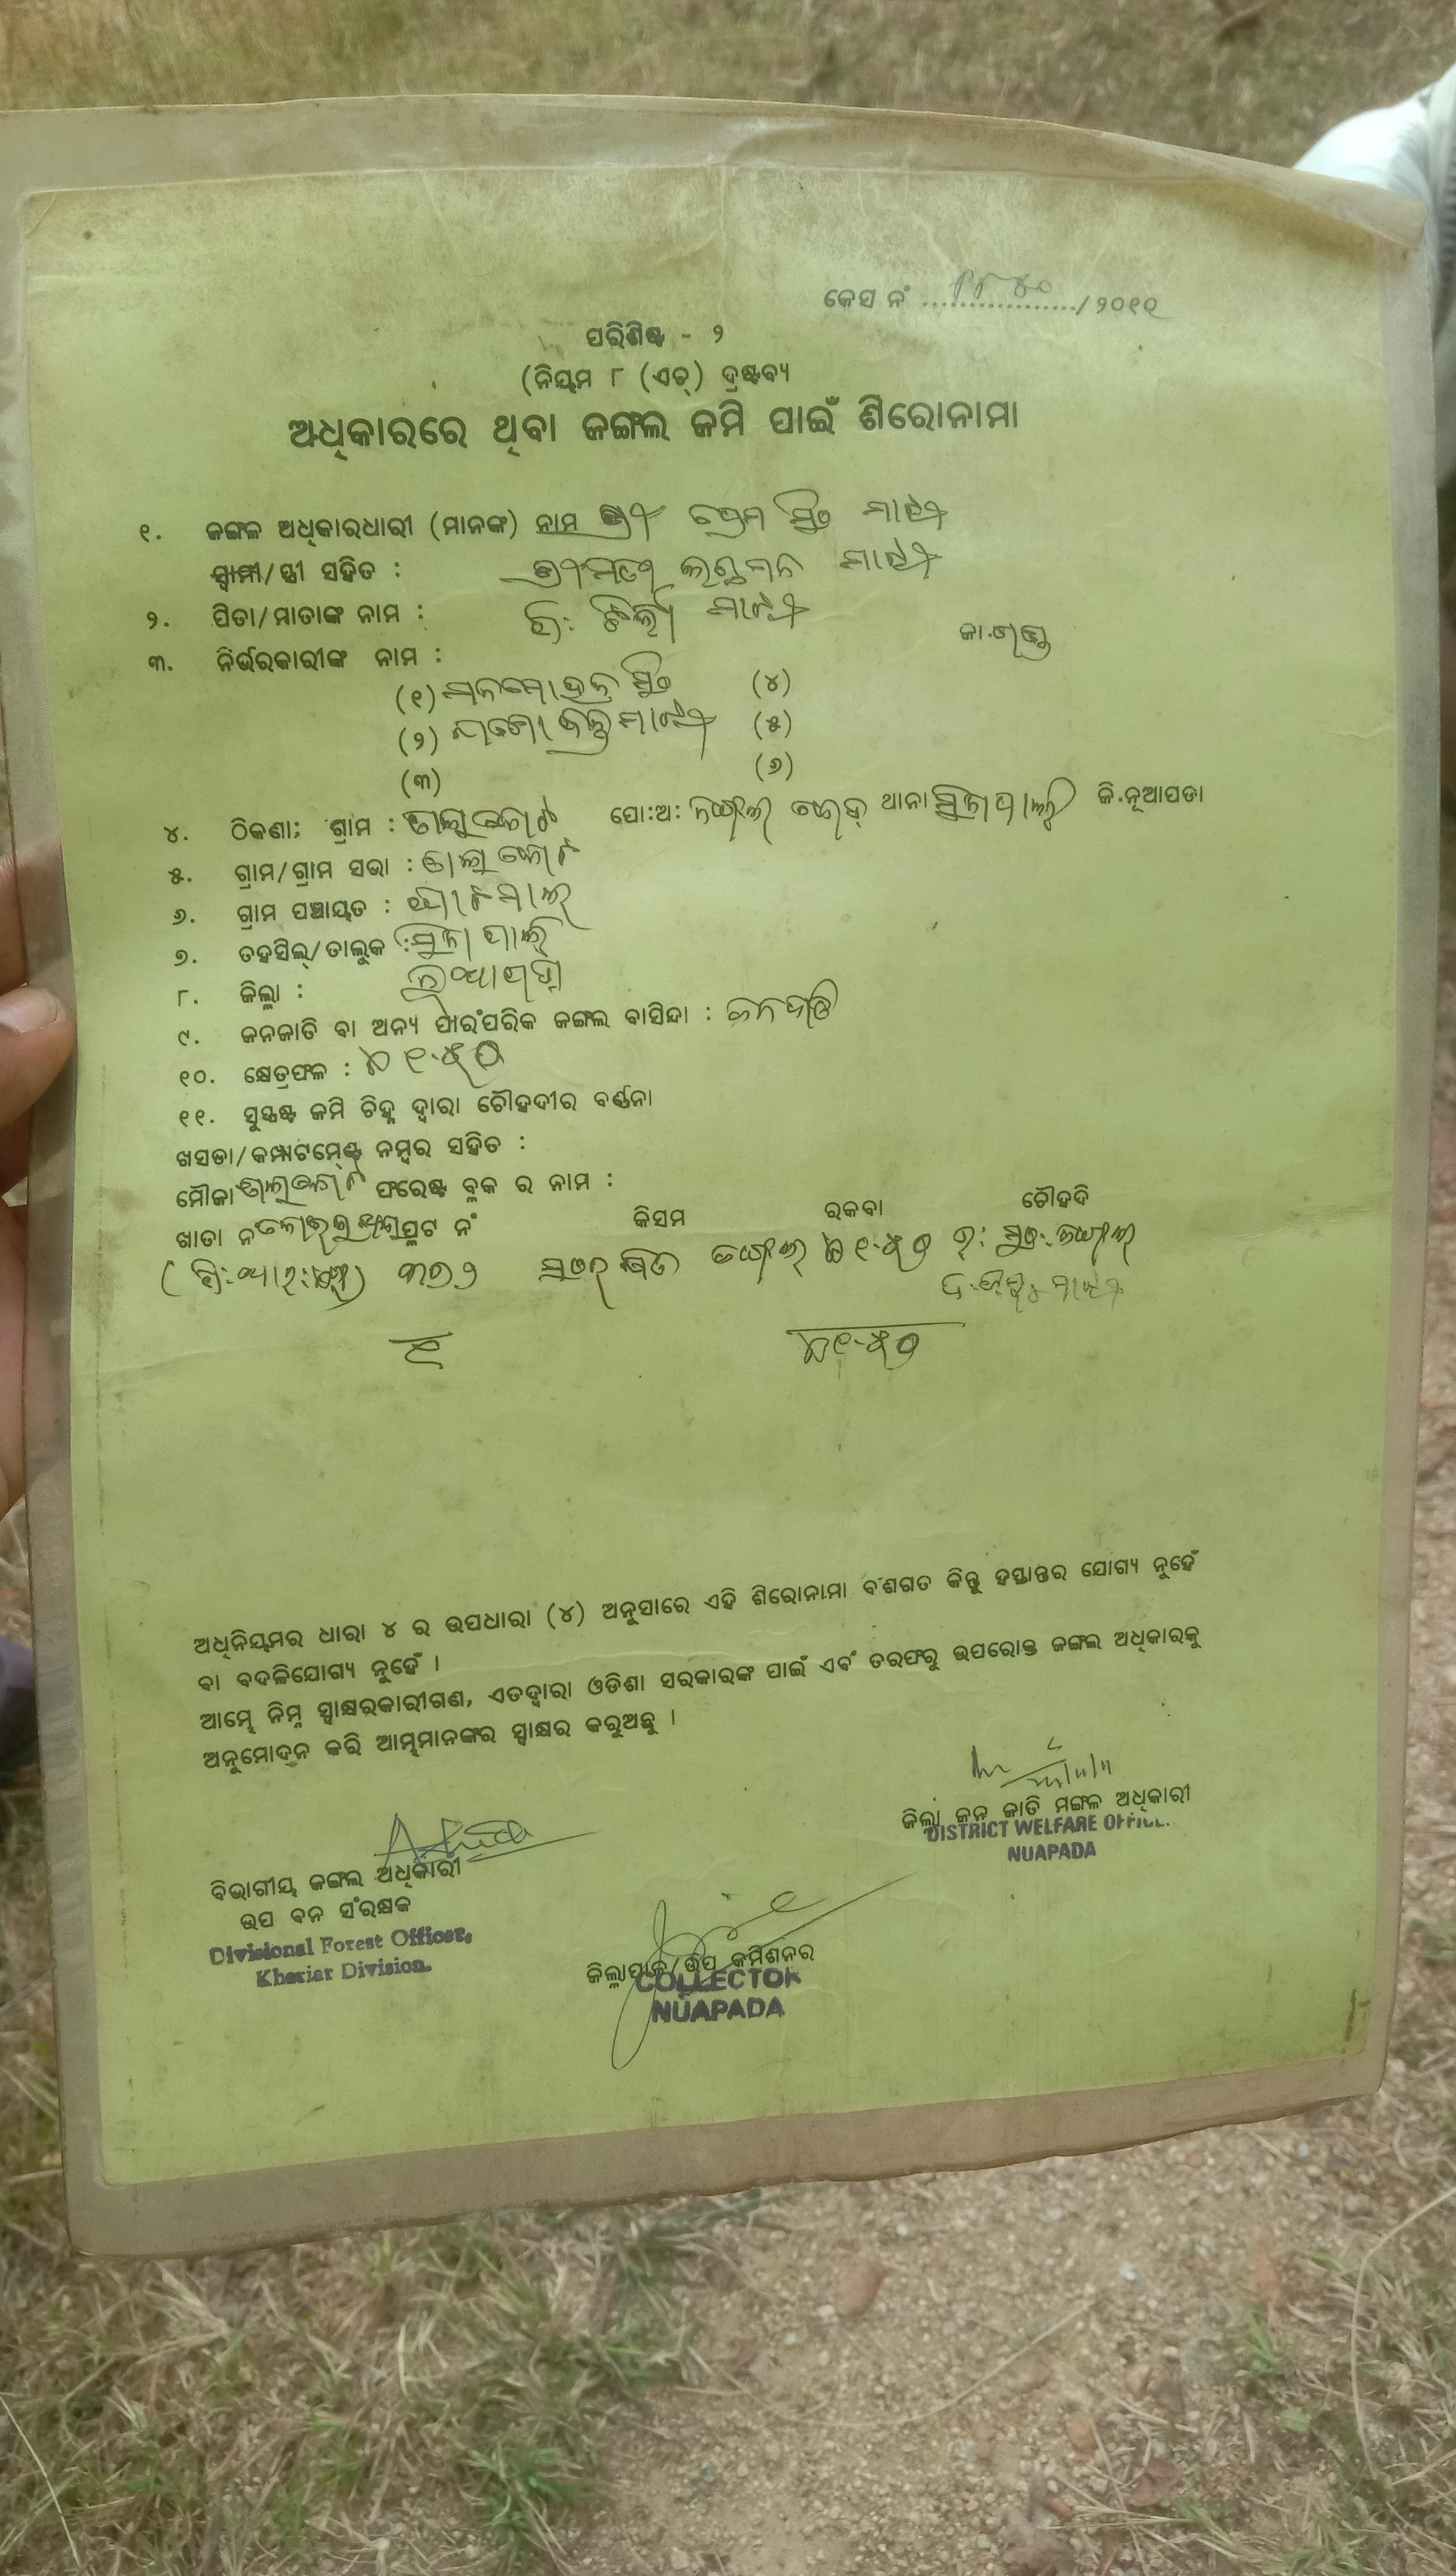 କେସ ନଂ ................../୨୦୧୧
ପରିଶିଷ୍ଟ - ୨
(ନିୟମ ୮ (ଏଚ୍) ଦ୍ରଷ୍ଟବ୍ୟ
ଅଧିକାରରେ ଥିବା ଜଙ୍ଗଲ ଜମି ପାଇଁ ଶିରୋନାମା
୧. ଜଙ୍ଗଳ ଅଧିକାରଧାରୀ (ମାନଙ୍କ) ନାମ ଶ୍ରୀ ପ୍ରେମ ସିଂ ମାଝୀ
ସ୍ୱାମୀ/ସ୍ତ୍ରୀ ସହିତ : ଶ୍ରୀମତୀ ମାଝୀ
୨. ପିତା/ମାତାଙ୍କ ନାମ : ମାଝୀ
୩. ନିର୍ଭରକାରୀଙ୍କ ନାମ : ଜା.ଗଣ୍ଡ
(୧) ମନମୋହନ ସିଂ (୪)
(୨) ମାଝୀ (୫)
(୩) (୬)
୪. ଠିକଣା; ଗ୍ରାମ : ତାଲୁକୋଟ ପୋ:ଅ: ଥାନା ସିନାପାଲି ଜି.ନୂଆପଡା
୫. ଗ୍ରାମ/ଗ୍ରାମ ସଭା : ତାଲୁକୋଟ
୬. ଗ୍ରାମ ପଞ୍ଚାୟତ :
୭. ତହସିଲ୍/ତାଲୁକ : ସିନାପାଲି
୮. ଜିଲ୍ଲା : ନୂଆପଡ଼ା
୯. ଜନଜାତି ବା ଅନ୍ୟ ପାରଂପରିକ ଜଙ୍ଗଲ ବାସିନ୍ଦା : ଜନଜାତି
୧୦. କ୍ଷେତ୍ରଫଳ : ଏ ୧.୫୦
୧୧. ସୁସ୍ପଷ୍ଟ ଜମି ଚିହ୍ନ ଦ୍ୱାରା ଚୌହଦୀର ବର୍ଣ୍ଣନା
ଖସଡା/କମ୍ପାଟମେଣ୍ଟ ନମ୍ବର ସହିତ :
ମୌଜା ତାଲୁକୋଟ ଫରେଷ୍ଟ ବ୍ଳକ ର ନାମ :
ଖାତା ନଂ ପ୍ଲଟ ନଂ କିସମ ରକବା ଚୌହଦି
ସଂରକ୍ଷିତ ଜଙ୍ଗଲ ଏ ୧.୫୦ ଉ: ସଂ.ଜଙ୍ଗଲ
ମାଝୀ
୧ ଏ୧.୫୦
ଅଧିନିୟମର ଧାରା ୪ ର ଉପଧାରା (୪) ଅନୁସାରେ ଏହି ଶିରୋନାମା ବଂଶଗତ କିନ୍ତୁ ହସ୍ତାନ୍ତର ଯୋଗ୍ୟ ନୁହେଁ
ବା ବଦଳିଯୋଗ୍ୟ ନୁହେଁ ।
ଆମ୍ଭେ ନିମ୍ନ ସ୍ୱାକ୍ଷରକାରୀଗଣ, ଏତଦ୍ୱାରା ଓଡିଶା ସରକାରଙ୍କ ପାଇଁ ଏବଂ ତରଫରୁ ଉପରୋକ୍ତ ଜଙ୍ଗଲ ଅଧିକାରକୁ
ଅନୁମୋଦନ କରି ଆମ୍ଭମାନଙ୍କର ସ୍ୱାକ୍ଷର କରୁଅଛୁ ।
ଜିଲ୍ଲା ଜନ ଜାତି ମଙ୍ଗଳ ଅଧିକାରୀ
DISTRICT WELFARE OFFICE.
NUAPADA
ବିଭାଗୀୟ ଜଙ୍ଗଲ ଅଧିକାରୀ
ଉପ ବନ ସଂରକ୍ଷକ
Divisional Forest Officer,
Khariar Division.
ଜିଲ୍ଲାପାଳ/ଉପ କମିଶନର
COLLECTOR
NUAPADA